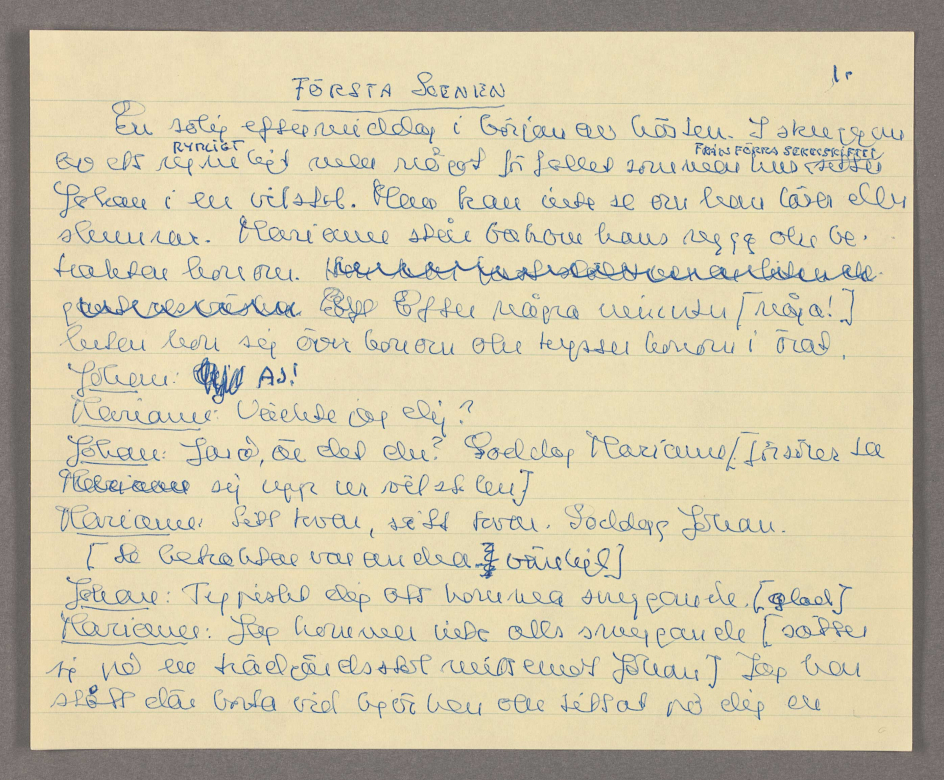 1.
FÖRSTA SCENEN
En solig eftermiddag i början av hösten. I skuggan
RYMLIGT FRÅN FÖRRA SEKELSKIFTET
av ett men något förfallet sommarhus sitter
Johan i en vilstol. Man kan inte se om han läser eller
slumrar. Marianne står bakom hans rygg och be-
traktar honom.
Efter några minuter [några!]
lutar hon sig över honom och kysser honom i örat.
Johan: Aj!
Marianne: Väckte jag dig?
Johan: Jaså, är det du? Goddag Marianne [försöker ta
Marianne sig upp ur vilstolen]
Marianne: Sitt kvar, sitt kvar. Goddag Johan.
[De betraktar varandra vänligt]
Johan: Typiskt dig att komma smygande. [glad]
Marianne: Jag kommer inte alls smygande [sätter
sig på en trädgårdsstol mittemot Johan] Jag har
stått där borta vid björken och tittat på dig en